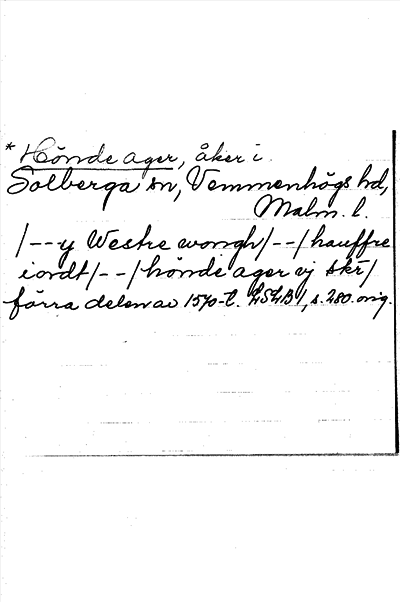 * Hönde ager, åker i
Solberga sn, Vemmenhögs hd,
Malm. l.
/--y Westre wongh/--/hauffre
iordt/--/hönde ager vj skr/
förra delen av 1570-t. LSLB 1, s. 280. orig.